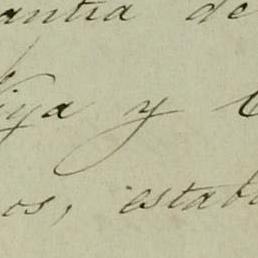 antia de
iya y
os, estab